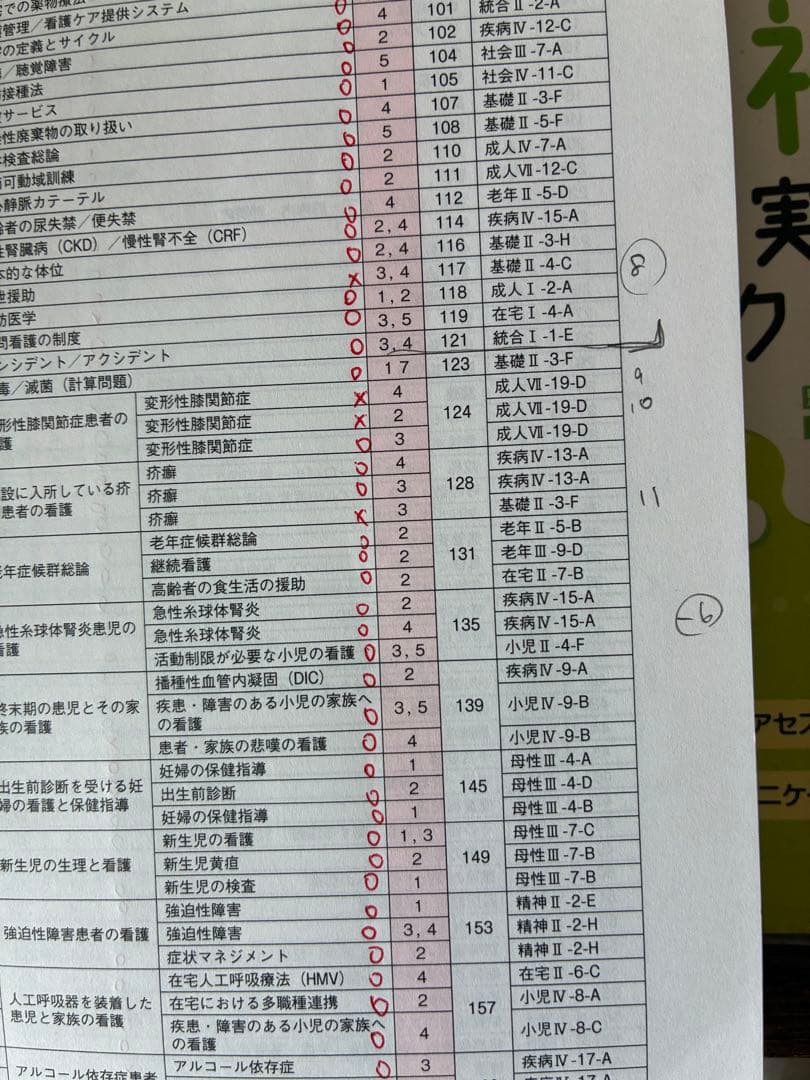 での薬物療法 101 統合Ⅱ-2-A
管理／看護ケア提供システム ○ 4 102 疾病Ⅳ-12-C
の定義とサイクル ○ 2 104 社会Ⅲ-7-A
／聴覚障害 ○ 5 105 社会Ⅳ-11-C
接種法 ○ 1 107 基礎Ⅱ-3-F
サービス ○ 4 108 基礎Ⅱ-5-F
性廃棄物の取り扱い ○ 5 110 成人Ⅳ-7-A
検査総論 ○ 2 111 成人Ⅶ-12-C
可動域訓練 ○ 2 112 老年Ⅱ-5-D
静脈カテーテル 4 114 疾病Ⅳ-15-A
者の尿失禁／便失禁 ○ 2, 4 116 基礎Ⅱ-3-H
腎臓病（CKD）／慢性腎不全（CRF） ○ 2, 4 117 基礎Ⅱ-4-C
本的な体位 ○ 3, 4 118 成人Ⅰ-2-A
援助 × 1, 2 119 在宅Ⅰ-4-A
医学 ○ 3, 5 121 統合Ⅰ-1-E
問看護の制度 ○ 3, 4 123 基礎Ⅱ-3-F
ンシデント／アクシデント ○ 1 7
毒／滅菌（計算問題） ○
8
9
10
11
-6
形性膝関節症患者の
護
変形性膝関節症 × 4 124 成人Ⅶ-19-D
変形性膝関節症 × 2 成人Ⅶ-19-D
変形性膝関節症 ○ 3 成人Ⅶ-19-D
設に入所している疥
患者の看護
疥癬 ○ 4 128 疾病Ⅳ-13-A
疥癬 ○ 3 疾病Ⅳ-13-A
疥癬 × 3 基礎Ⅱ-3-F
老年症候群総論
老年症候群総論 ○ 2 131 老年Ⅱ-5-B
継続看護 ○ 2 老年Ⅲ-9-D
高齢者の食生活の援助 ○ 2 在宅Ⅱ-7-B
急性糸球体腎炎患児の
看護
急性糸球体腎炎 ○ 2 135 疾病Ⅳ-15-A
急性糸球体腎炎 ○ 4 疾病Ⅳ-15-A
活動制限が必要な小児の看護 ○ 3, 5 小児Ⅱ-4-F
終末期の患児とその家
族の看護
播種性血管内凝固（DIC） ○ 2 139 疾病Ⅳ-9-A
疾患・障害のある小児の家族へ
の看護 ○ 3, 5 小児Ⅳ-9-B
患者・家族の悲嘆の看護 ○ 4 小児Ⅳ-9-B
出生前診断を受ける妊
婦の看護と保健指導
妊婦の保健指導 ○ 1 145 母性Ⅲ-4-A
出生前診断 ○ 2 母性Ⅲ-4-D
妊婦の保健指導 ○ 1 母性Ⅲ-4-B
新生児の生理と看護
新生児の看護 ○ 1, 3 149 母性Ⅲ-7-C
新生児黄疸 ○ 2 母性Ⅲ-7-B
新生児の検査 ○ 1 母性Ⅲ-7-B
強迫性障害患者の看護
強迫性障害 ○ 1 153 精神Ⅱ-2-E
強迫性障害 ○ 3, 4 精神Ⅱ-2-H
症状マネジメント ○ 2 精神Ⅱ-2-H
人工呼吸器を装着した
患児と家族の看護
在宅人工呼吸療法（HMV） ○ 4 157 在宅Ⅱ-6-C
在宅における多職種連携 ○ 2 小児Ⅳ-8-A
疾患・障害のある小児の家族へ
の看護 ○ 4 小児Ⅳ-8-C
アルコール依存症患者
アルコール依存症 ○ 3 疾病Ⅳ-17-A
実
ク
アセス
ニケ